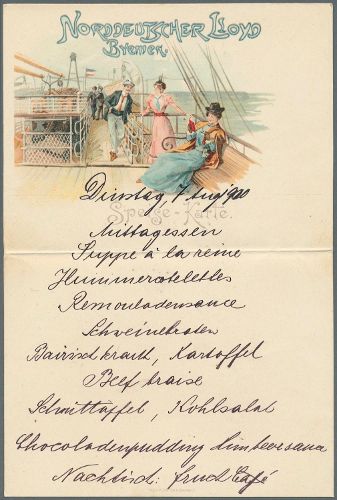 Norddeutscher Lloyd
Bremen.
Dinstag 7 Aug 900
Speise-Karte.
Mittagessen
Suppe à la reine
Hummercotelettes
Remouladensauce
Schweinebraten
Bairisch kraut, Kartoffel
Beef braisé
Schnittapfel, Kohlsalat
Chocoladenpudding Himbeersauce
Nachtisch: frucht Café